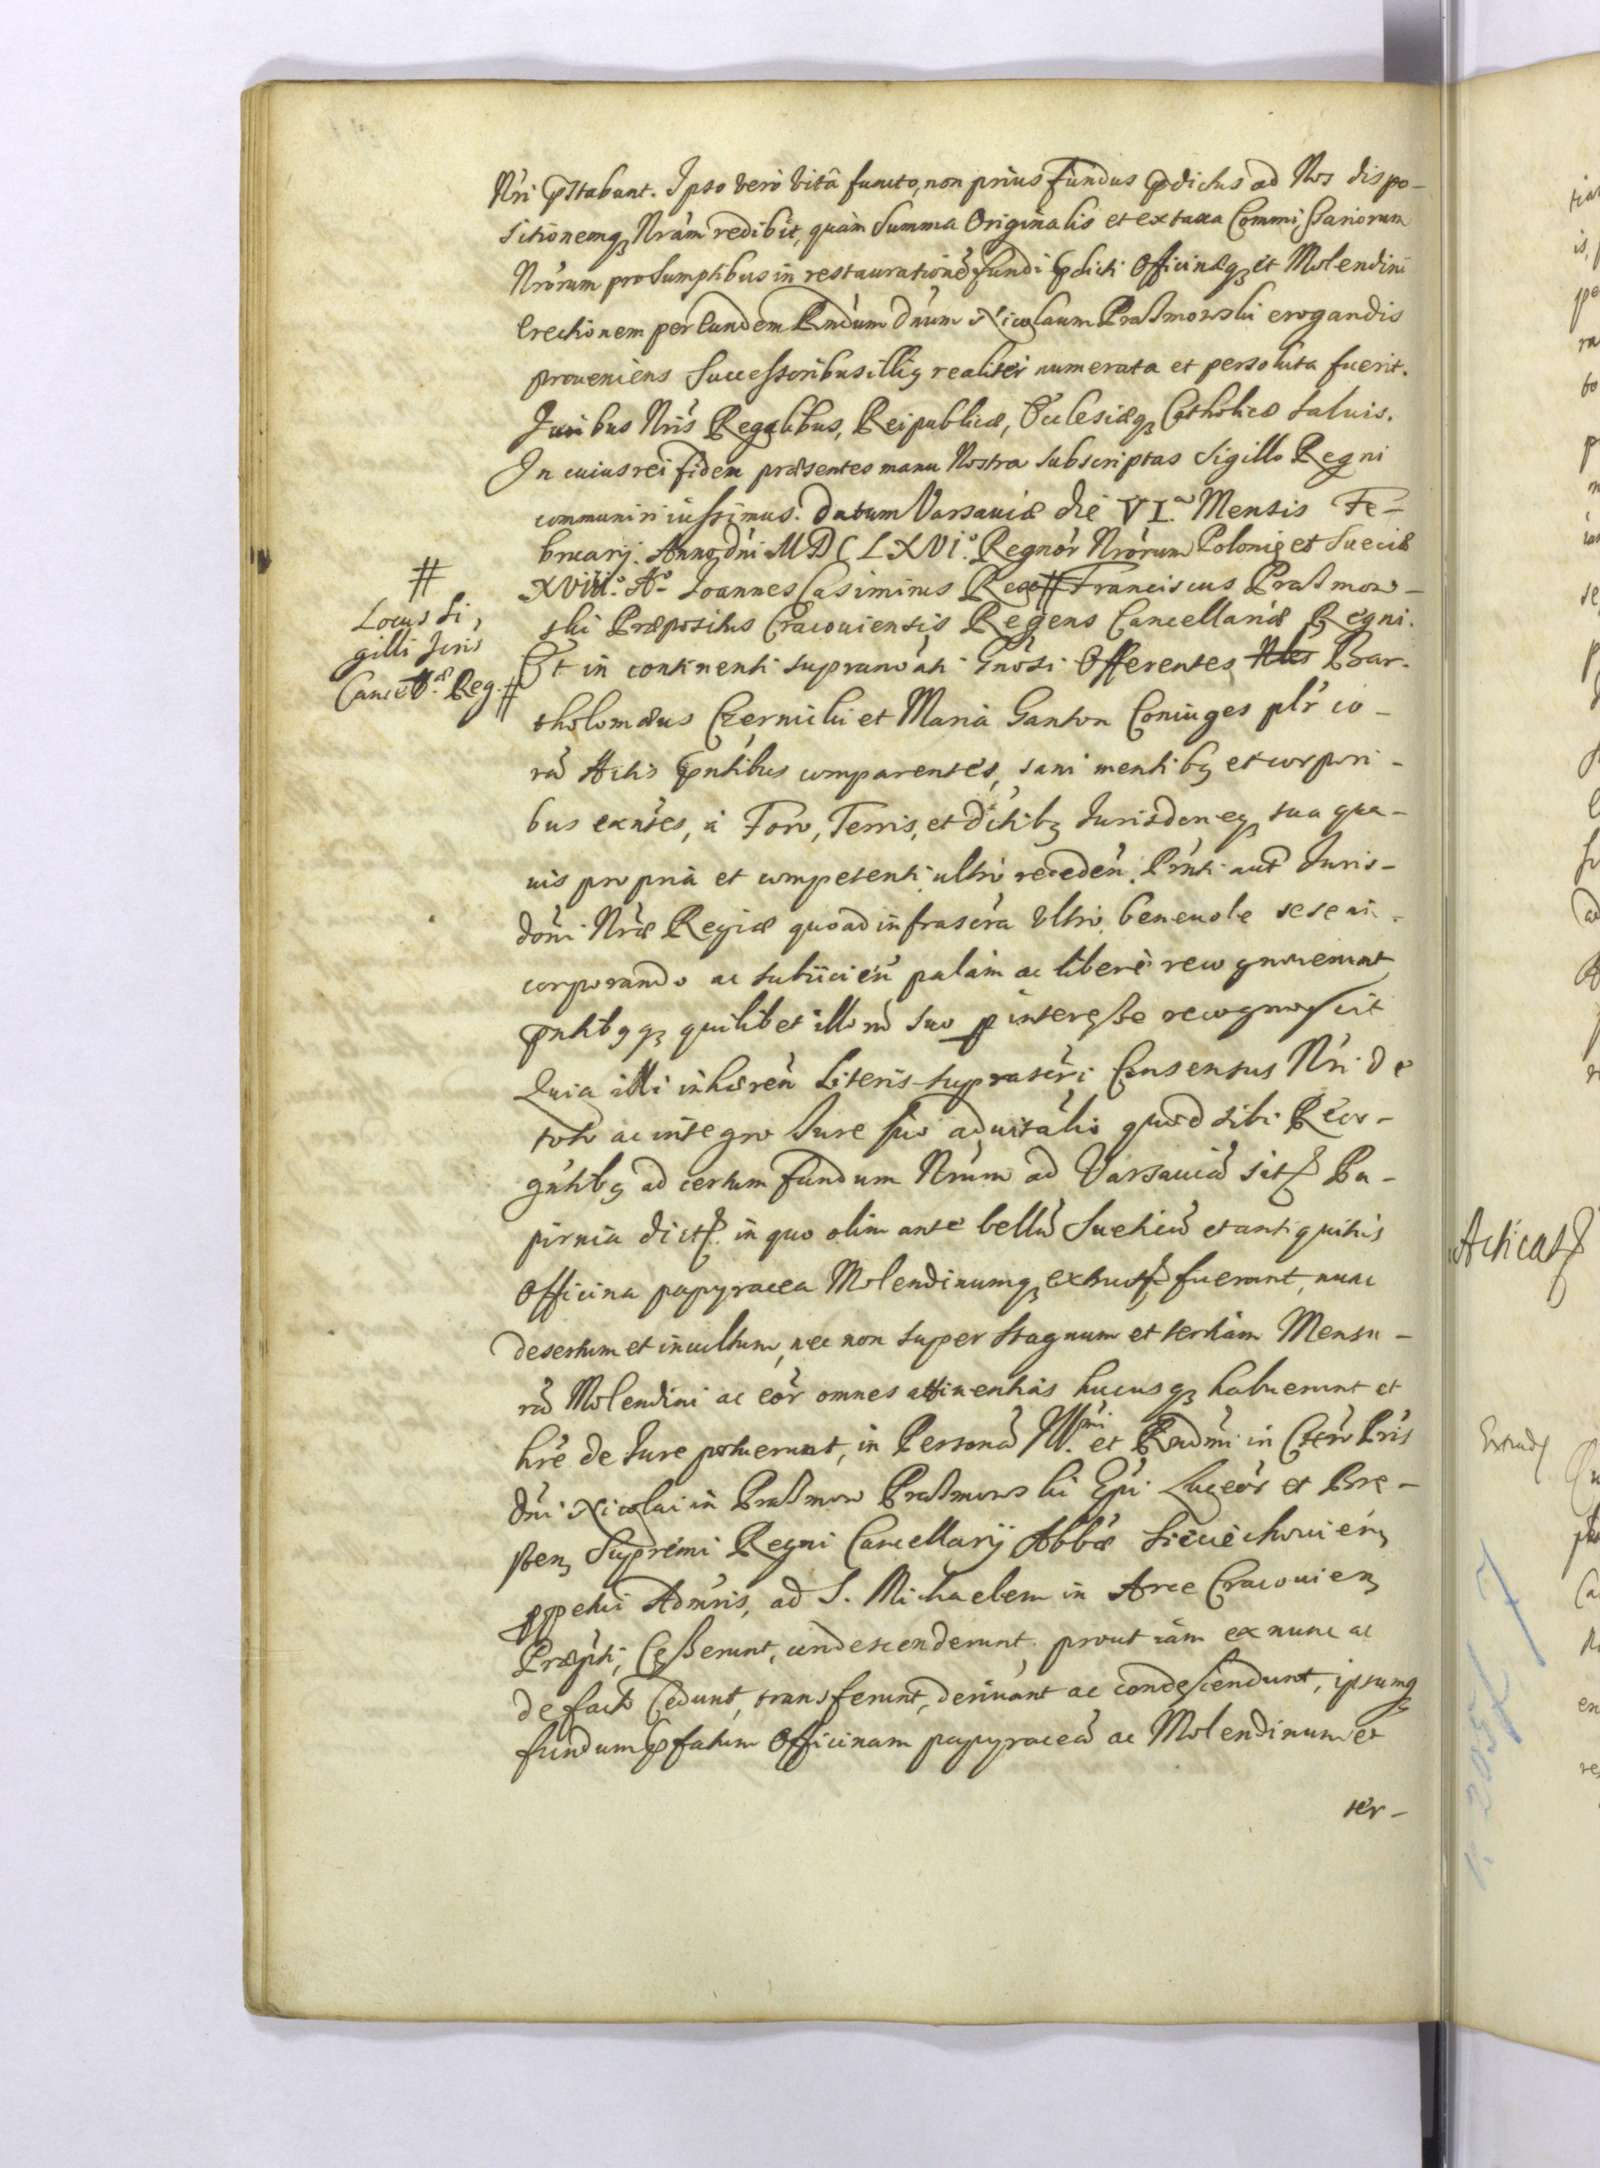 Nri pstabunt. Ipso verò vitâ functo, non prius Fundus pdictus ad Nos dispo-
sitionemq Nram redibit, quàm Summa Originalis et ex taxa Commissariorum
Nrorum pro sumptibus in restauratione fundi pdicti Officinæq et Molendini
Erectionem per Eundem Rndum Dnum Nicolaum Praßmowski erogandis
proueniens Successoribus illiq realiter numerata et persoluta fuerit.
Juribus Nris Regalibus, Reipublicæ, Ecclesiæq Catholicæ saluis.
In cuius rei fidem præsentes manu Nostra subscriptas Sigillo Regni
communiri iussimus. Datum Varsauiæ die VI.a Mensis Fe-
bruarij. Anno Dni MDCLXVI.o Regnor Nrorum Poloniæ et Sueciæ
XVIII.o Ao. Joannes Casimirus Rex # Franciscus Praßmow-
ski Præpositus Cracouiensis Regens Cancellariæ Regni.
#
Locus Si,
gilli Iuris
Cancell.æ Reg. #
Et in continenti supranoati Gnosi Offerentes Bar-
tholomæus Czernicki et Maria Ganton Coniuges plr co-
ra Actis pntibus comparentes, sani mentibq et corpori-
bus exntes, à Foro, Terris, et Dictibq Jurisdoneq sua qua-
uis propria et competenti ultro receden. Prnti aut Juris-
doni Nræ Regiæ quoad infrascra Vltro, beneuole sese in-
corporando ac subiicien palàm ac liberè recognouerunt
pntibqq quilibet illoru suo p interesse recognoscit
Quia illi inhæren Literis suprascri Consensus Nri de
toto ac integro Iure suo aduitalio quod sibi Reco-
gntibq ad certum Fundum Nrum ad Varsauia sit Pa-
pirnia dict. in quo olim ante bellu Sueticu et antiquitus
Officina papyracea Molendinumq extruct fuerunt, nunc
desertum et incultum, nec non super stagnum et tertiam Mensu-
ra Molendini ac eor omnes attinentias hucusq habuerunt et
hre de Iure potuerunt, in Persona Ill.mi et Rndmi in Chro Pris
Dni Nicolai in Praßmow Praßmowski Epi Luceor et Bre-
sten Supremi Regni Cancellarij Abbæ Sieciechouien
ppetui Admris, ad S. Michaelem in Arce Cracouien
Præpti, Cesserunt, condescenderunt, prout iam ex nunc ac
de facto Cedunt, transferunt, deriuant ac condescendunt, ipsumq
fundum pfatum Officinam papyracea ac Molendinum et
ter-
Acticat
k 205